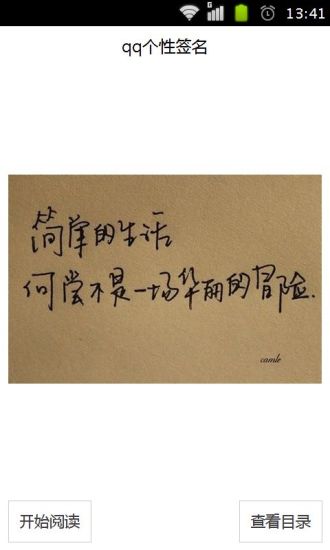 13:41
qq个性签名
简单的生活
何尝不是一场华丽的冒险.
camle
开始阅读
查看目录